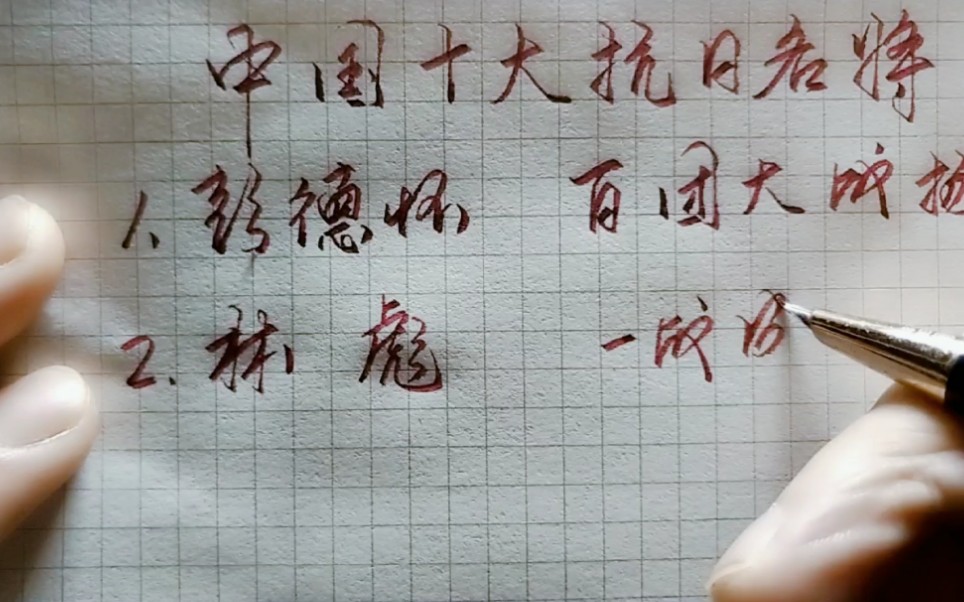 中国十大抗日名将
1、彭德怀 百团大战扬
2、林彪 一战